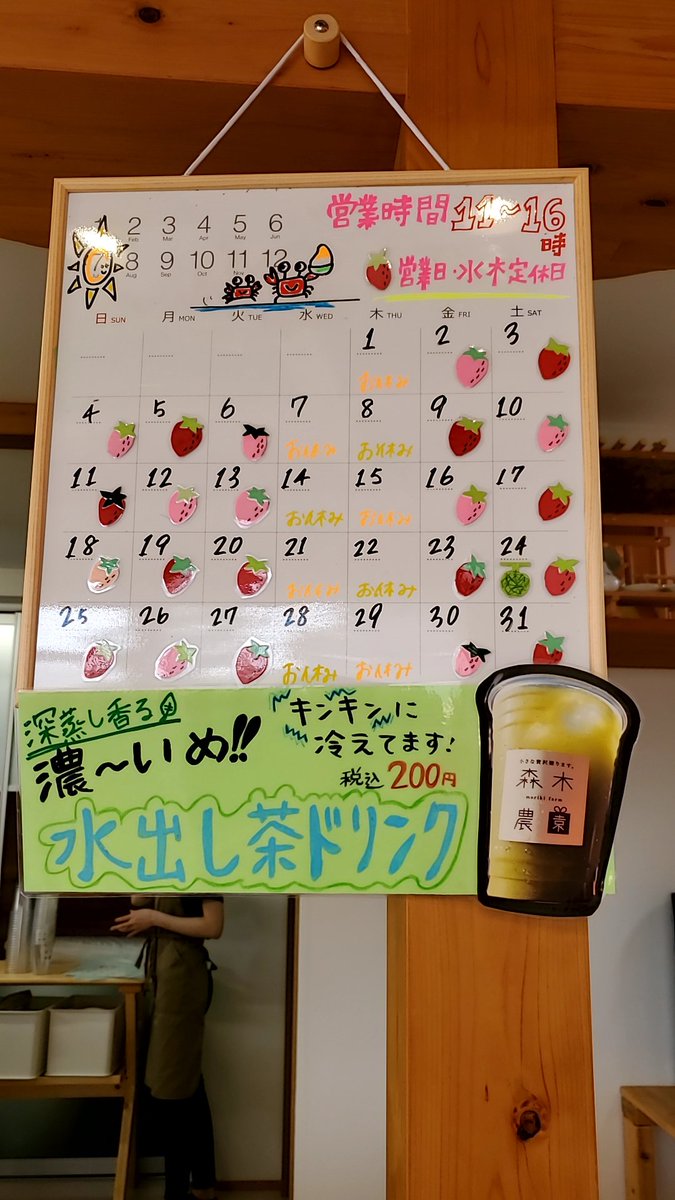 営業時間 11~16時
1 2 3 4 5 6
Feb Mar Apr May Jun
8 9 10 11 12
Aug Sep Oct Nov
営業日・水木定休日
日 SUN 月 MON 火 TUE 水 WED 木 THU 金 FRI 土 SAT
1 2 3
お休み
4 5 6 7 8 9 10
お休み お休み
11 12 13 14 15 16 17
お休み お休み
18 19 20 21 22 23 24
お休み お休み
25 26 27 28 29 30 31
お休み お休み
深蒸し香る
濃~いめ!!
キンキンに
冷えてます!
税込200円
水出し茶ドリンク
小さな贅沢贈ります。
森木
moriki farm
農園